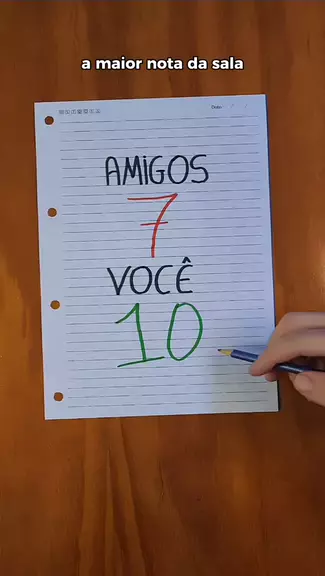 a maior nota da sala
Date: / /
AMiGOS
7
VOCÊ
10